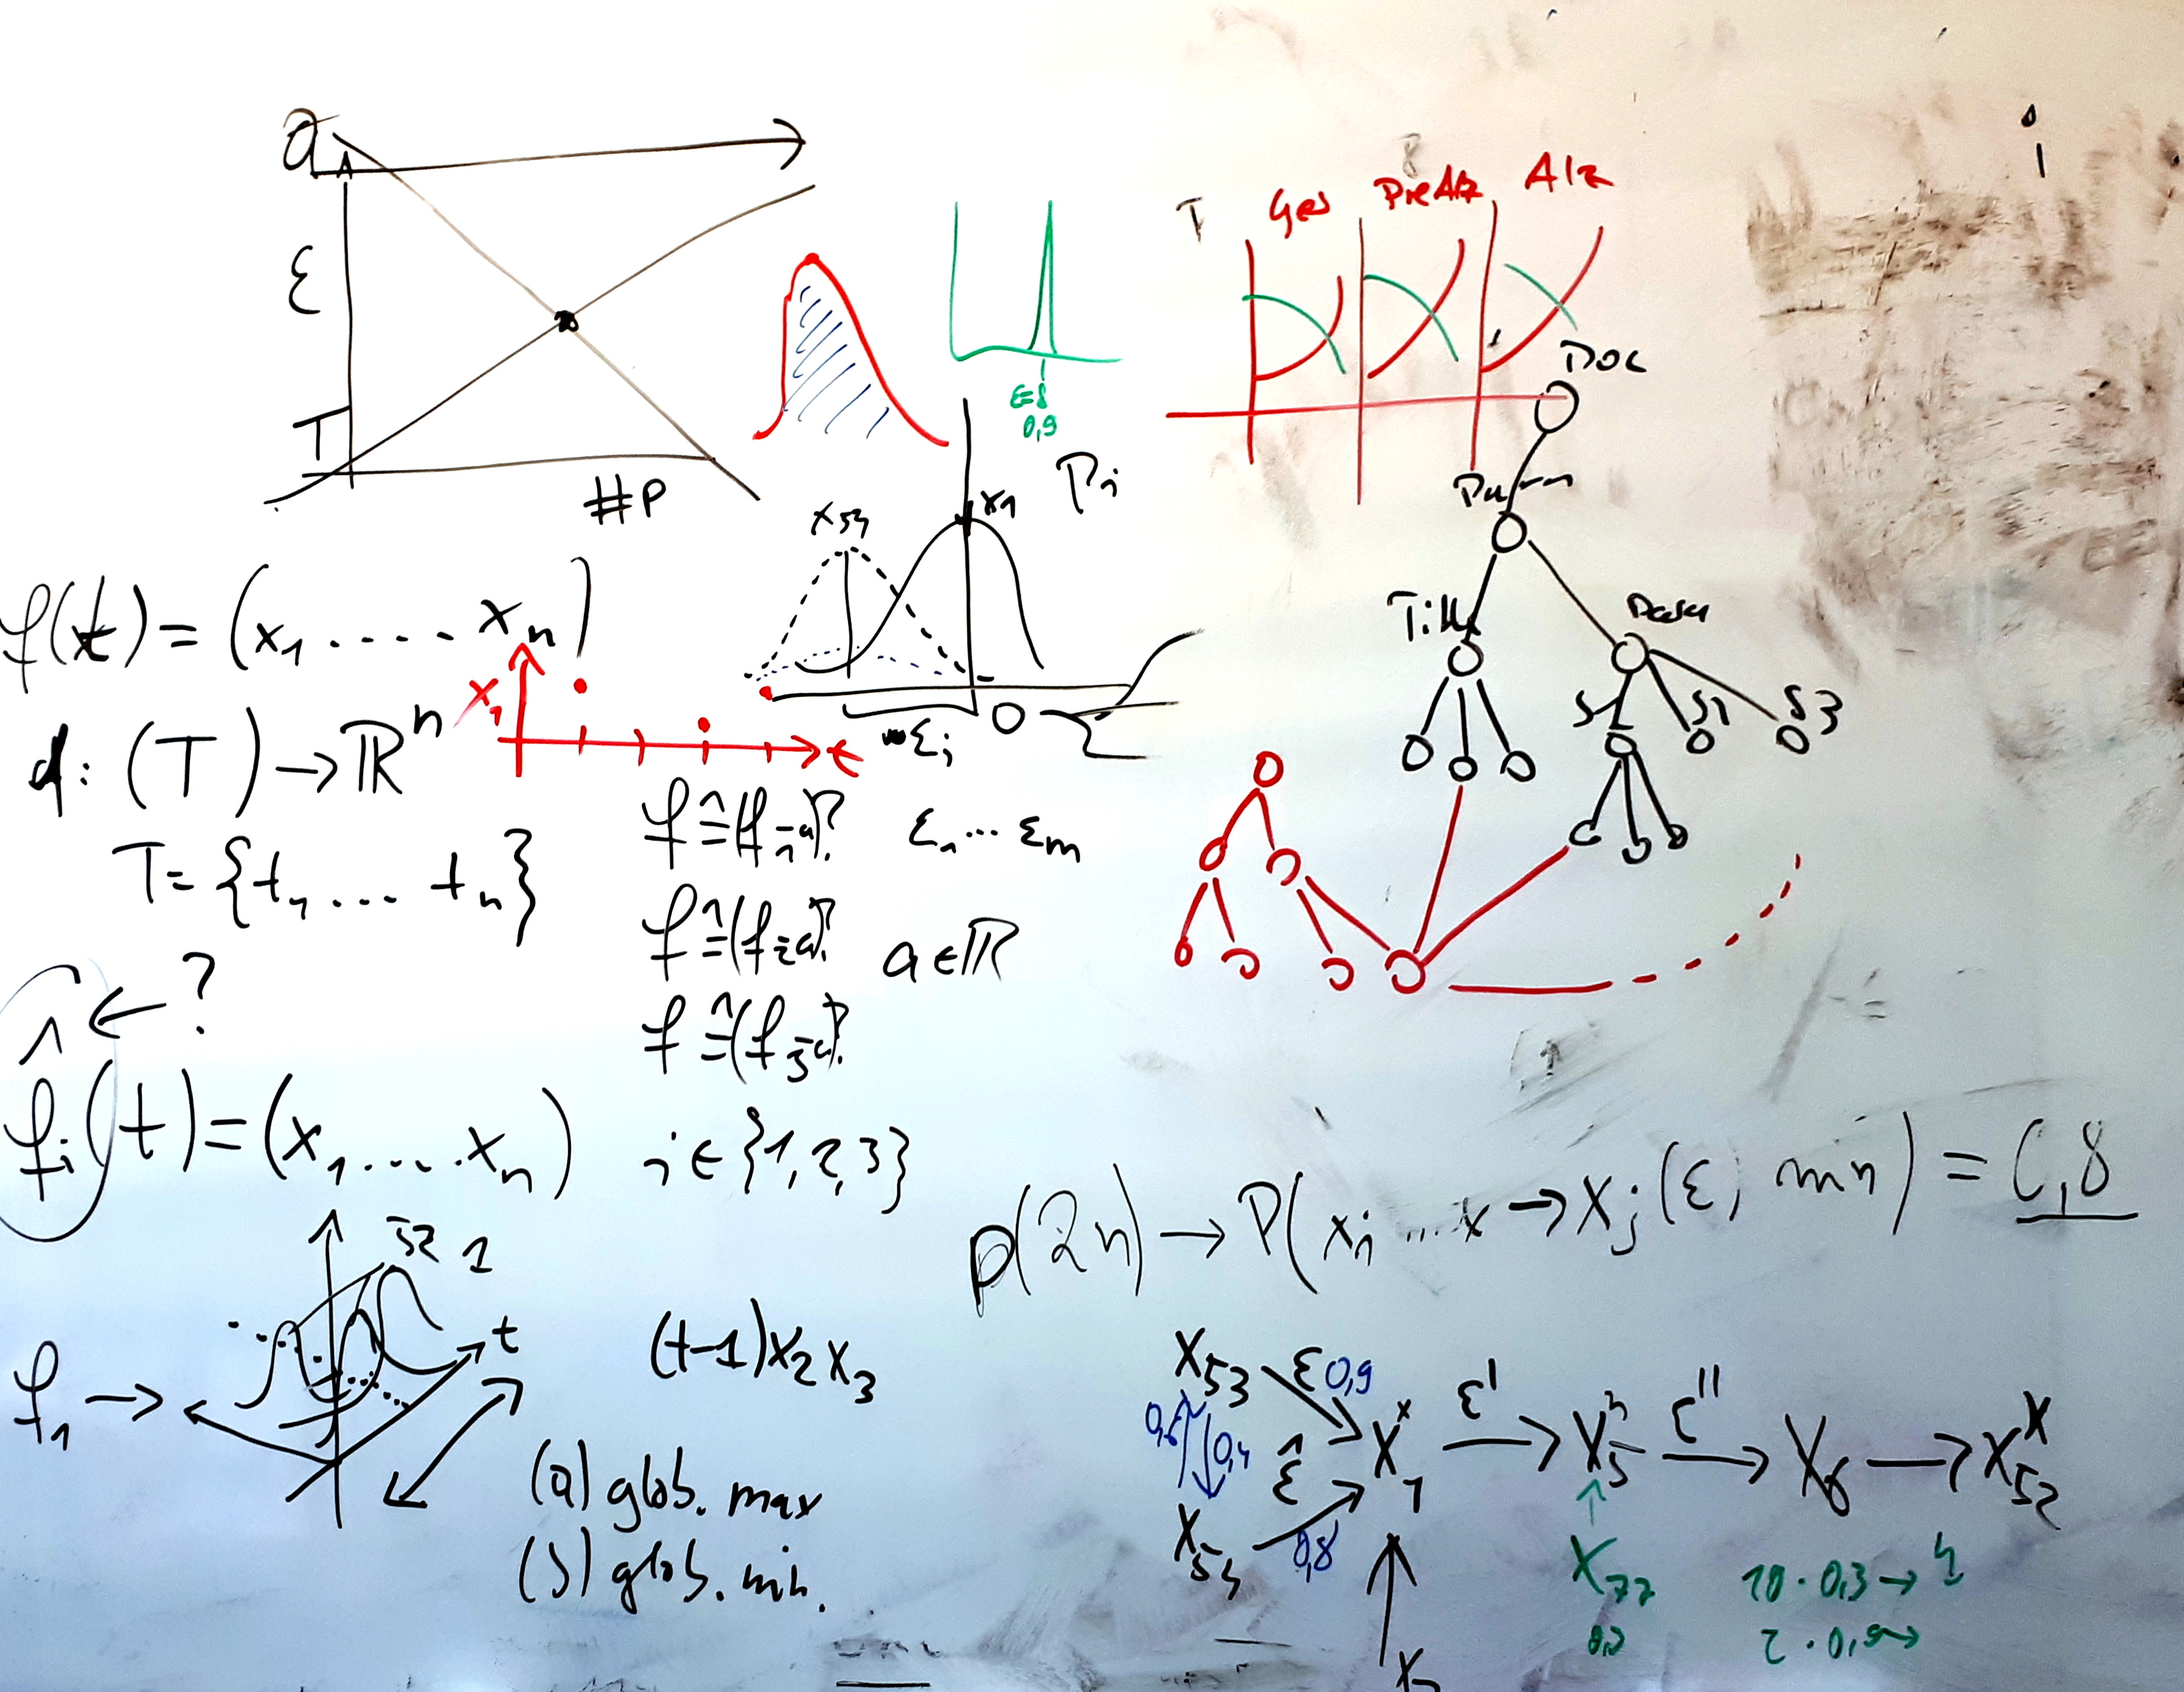 a
ε
T
#P
ε=8
0,9
Pi
x54
x1
0
εi
T
Ges
PreAlz
Alz
Doc
S1
S3
f(t) = (x1 ..... xn)
x1
t
d: (T) → ℝⁿ
T = {t1 .... tn}
f ≙ (f1-a)?
f ≙ (f2-a)?
f ≙ (f3-a)?
ε1 ... εm
a ∈ ℝ
^ ← ?
fi(t) = (x1 .... xn)
i ∈ {1,2,3}
52 1
t
f1 →
(t-1) x2 x3
(a) glob. max
(b) glob. min.
p(2n) → P(xi ... x → xj (ε, min) = 0,8
x53 ε 0,9
0,4
ε̂
x54 0,8
x1 ε' → x5 ε'' → x6 → x52
x77
10 · 0,3 →
2 · 0,9 →